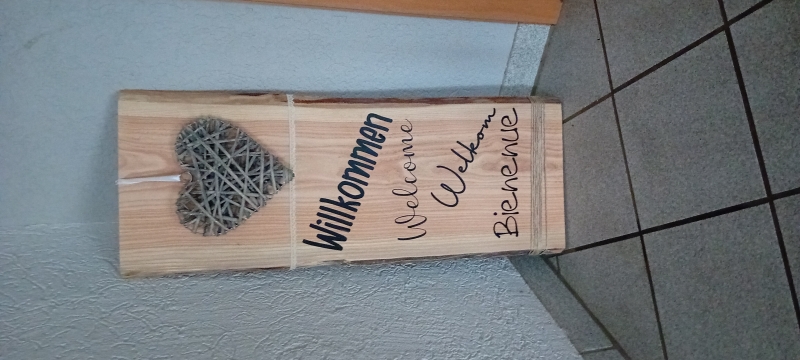 Willkommen
Welcome
Welkom
Bienenue